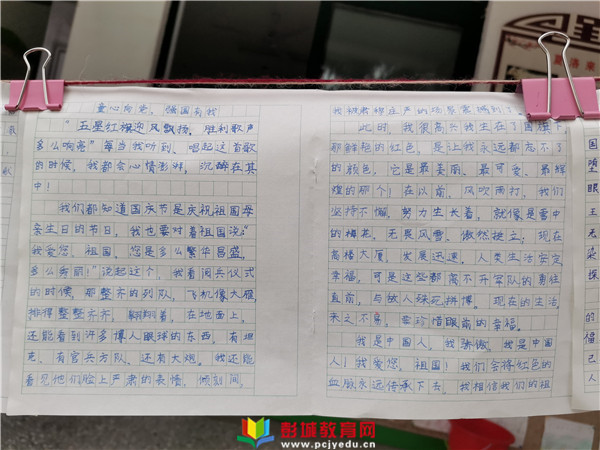 童心向党，强国有我
"五星红旗迎风飘扬，胜利歌声
多么响亮"每当我听到、唱起这首歌
的时候，我都会心情澎湃，沉醉在其
中！
我们都知道国庆节是庆祝祖国母
亲生日的节日，我也要对着祖国说："
我爱您，祖国，您是多么繁华昌盛，
多么秀丽！"说起这个，我看阅兵仪式
的时候，那整齐的列队，飞机像大雁
排得整整齐齐，翱翔着，在地面上，
还能看到许多博人眼球的东西，有坦
克、有官兵方队、还有大炮。我还能
看见他们脸上严肃的表情，倾刻间，
我被着棉庄严的场景震撼到了。
此时，我很高兴我生在了国旗下
那鲜艳的红色，是让我永远都忘不了
的颜色，它是最美丽、最可爱、最辉
煌的那个！在以前，风吹雨打，我们
坚持不懈，努力生长着，就像是雪中
的梅花，无畏风雪，傲然挺立；现在
高楼大厦，发展迅速，人类生活安定
幸福，可是这些都离不开军队的勇往
直前，与敌人殊死拼搏。现在的生活
来之不易，要珍惜眼前的幸福。
我是中国人，我骄傲，我是中国
人！我爱您，祖国！我们会将红色的
血脉永远传承下去，我相信我们的祖
国
眼
王
无
的
己
人
彭城教育网
www.pcjyedu.cn